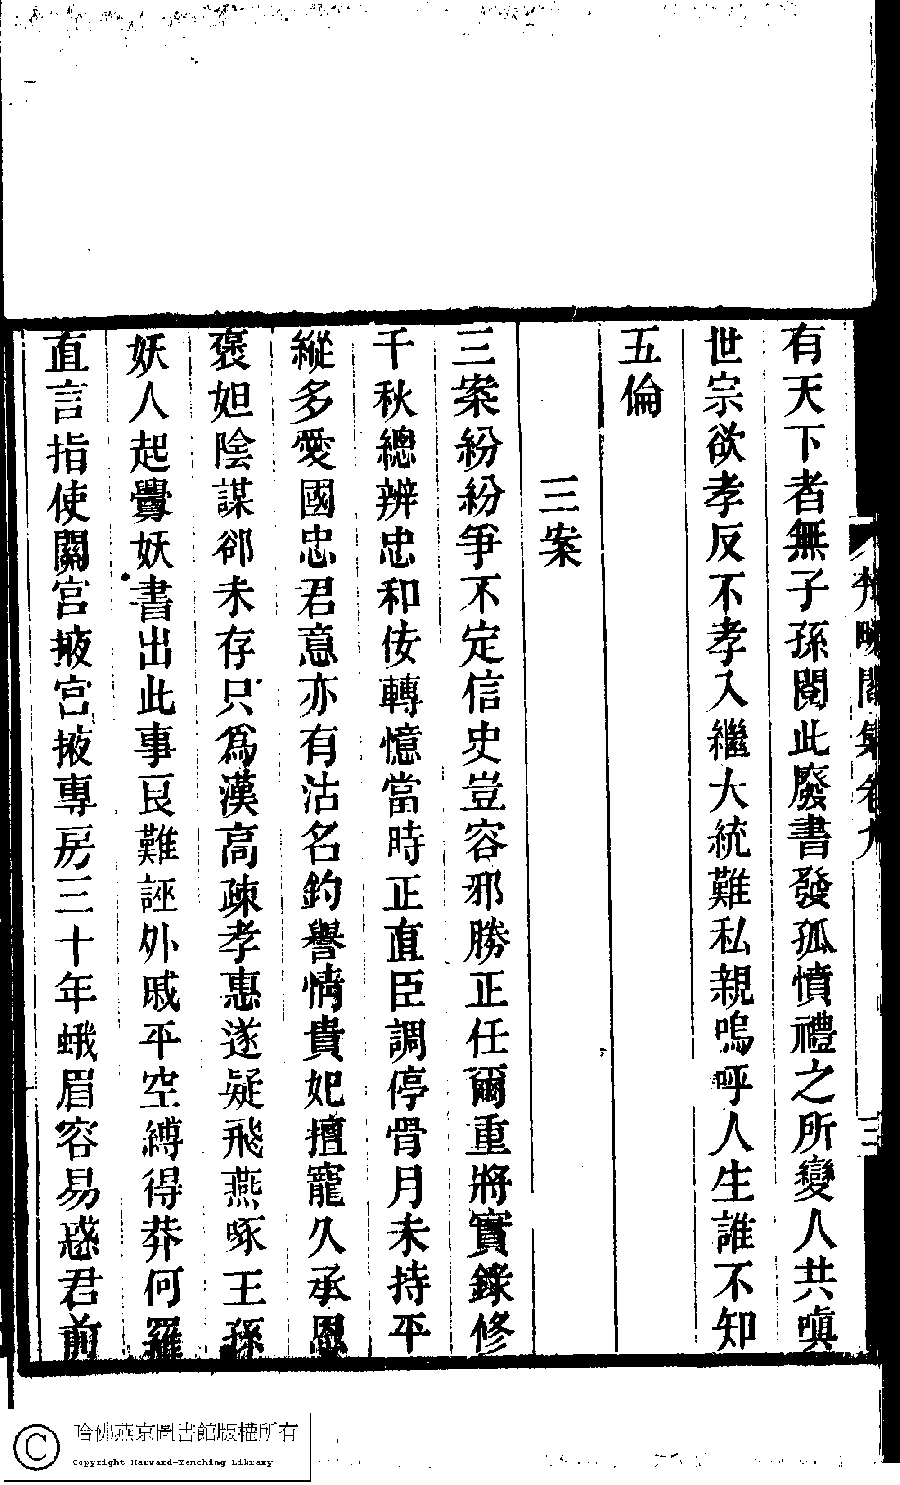 有天下者無子孫閱此廢書發孤憤禮之所變人共嗔
世宗欲孝反不孝入繼大統難私親嗚呼人生誰不知
五倫
三案
三案紛紛爭不定信史豈容邪勝正任爾重將實錄修
千秋總辨忠和佞轉憶當時正直臣調停骨月未持平
縱多愛國忠君意亦有沽名釣譽情貴妃擅寵久承恩
褒妲陰謀郤未存只爲漢高疎孝惠遂疑飛燕啄王孫
妖人起釁妖書出此事艮難誣外戚平空縛得莽何羅
直言指使關宮掖宮掖專房三十年蛾眉容易惑君前
晚閣集卷九
三
哈佛燕京圖書館版權所有
Copyright Harvard-Yenching Library